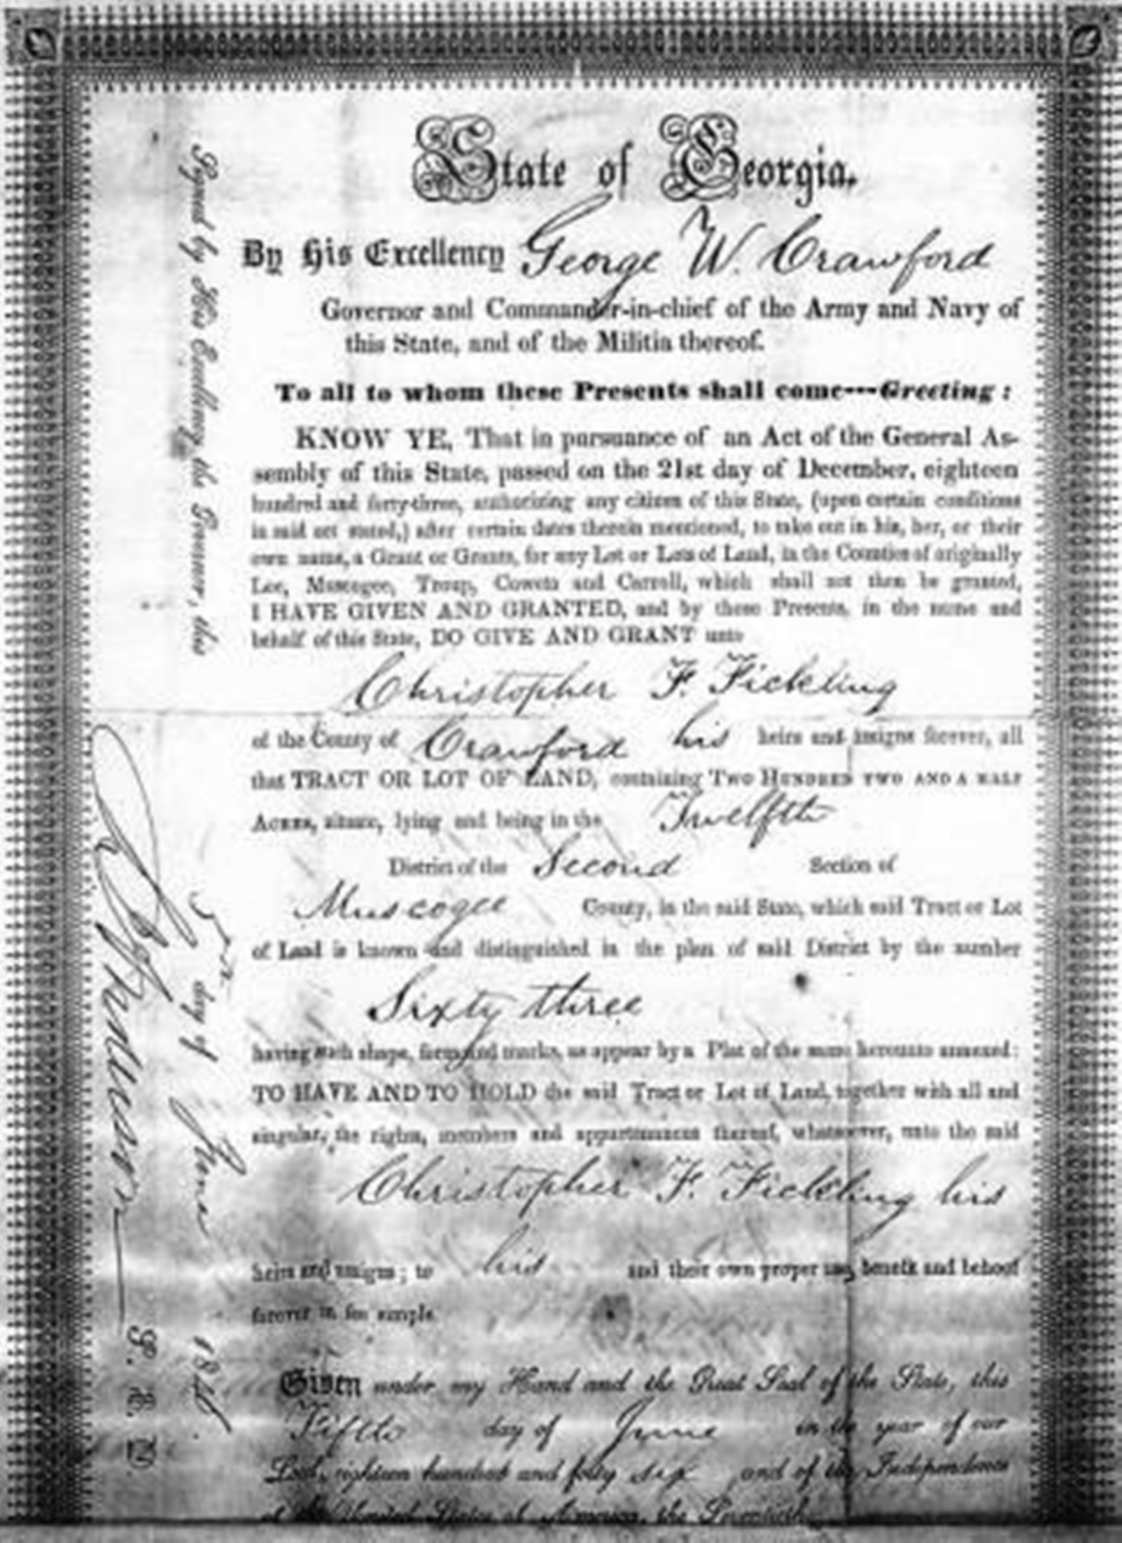 State of Georgia.
By His Excellency George W. Crawford
Governor and Commander-in-chief of the Army and Navy of
this State, and of the Militia thereof.
To all to whom these Presents shall come---Greeting:
KNOW YE, That in pursuance of an Act of the General As-
sembly of this State, passed on the 21st day of December, eighteen
hundred and forty-three, authorizing any citizen of this State, (upon certain conditions
in said act stated,) after certain dates therein mentioned, to take out in his, her, or their
own name, a Grant or Grants, for any Lot or Lots of Land, in the Counties of originally
Lee, Muscogee, Troup, Coweta and Carroll, which shall not then be granted,
I HAVE GIVEN AND GRANTED, and by these Presents, in the name and
behalf of this State, DO GIVE AND GRANT unto
Christopher F. Fickling
of the County of Crawford his heirs and assigns forever, all
that TRACT OR LOT OF LAND, containing TWO HUNDRED TWO AND A HALF
ACRES, situate, lying and being in the Twelfth
District of the Second Section of
Muscogee County, in the said State, which said Tract or Lot
of Land is known and distinguished in the plan of said District by the number
Sixty three
having such shape, form, and marks, as appear by a Plat of the same hereunto annexed:
TO HAVE AND TO HOLD the said Tract or Lot of Land, together with all and
singular, the rights, members and appurtenances thereof, whatsoever, unto the said
Christopher F. Fickling his
heirs and assigns; to his and their own proper use, benefit and behoof
forever in fee simple.
Given under my Hand and the Great Seal of the State, this
Fifth day of June in the year of our
Lord, eighteen hundred and forty six and of the Independence
of the United States of America, the Seventieth
Signed by His Excellency the Governor, this
day of June 1846.
S. E. D.